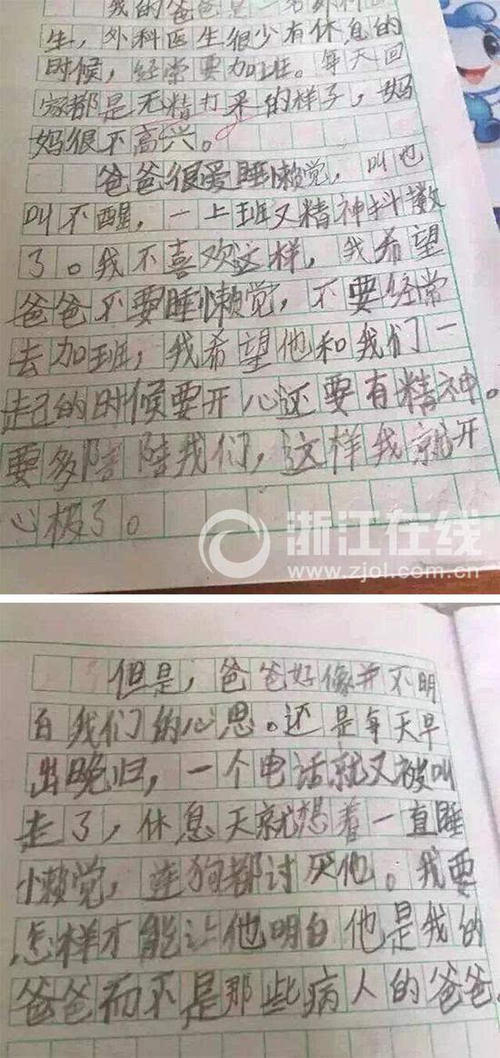 我的爸爸是一名外科医
生，外科医生很少有休息的
时候，经常要加班。每天回
家都是无精打采的样子，妈
妈很不高兴。
爸爸很爱睡懒觉，叫也
叫不醒，一上班又精神抖数
了。我不喜欢这样，我希望
爸爸不要睡懒觉，不要经常
去加班，我希望他和我们一
起的时候要开心还要有精神。
要多陪陪我们，这样我就开
心极了。
浙江在线
www.zjol.com.cn
但是，爸爸好像并不明
白我们的心思。还是每天早
出晚归，一个电话就又被叫
走了，休息天就想着一直睡
懒觉，连狗都讨厌他。我要
怎样才能让他明白他是我的
爸爸而不是那些病人的爸爸。